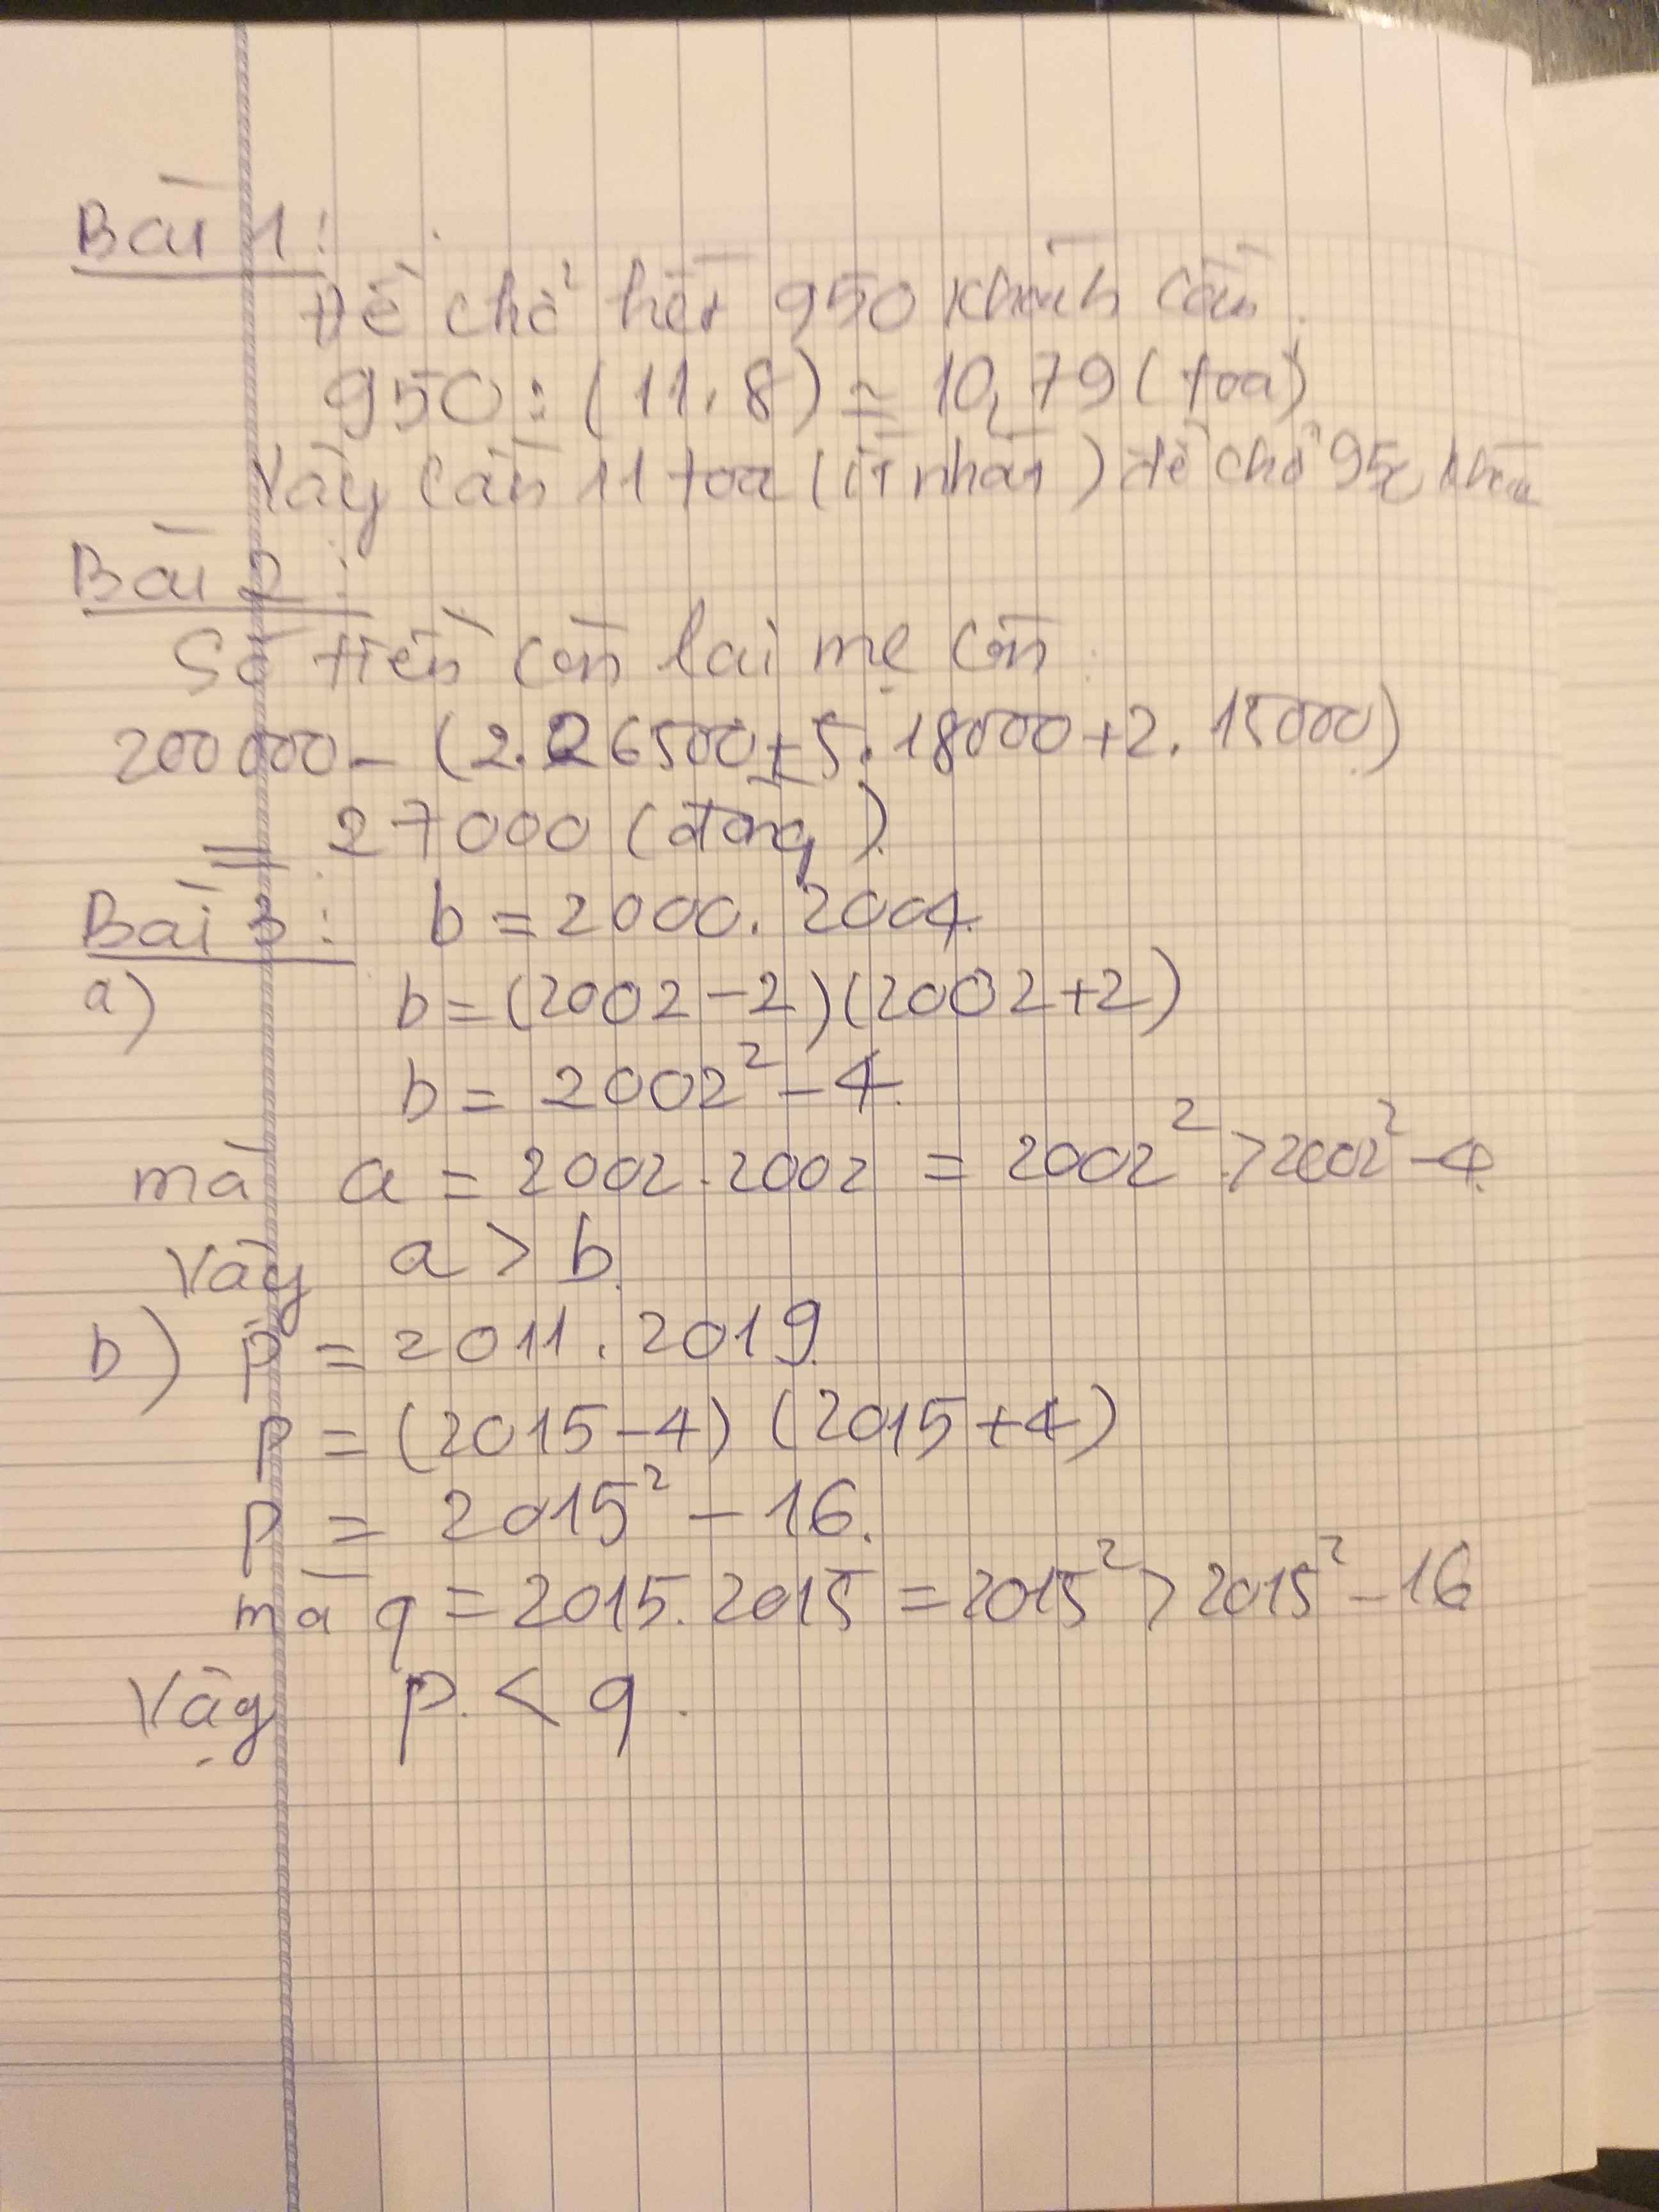 Bài 1:
Để chở hết 950 khách cần.
950 : (11.8) ≃ 10,79 (toa)
Vậy cần 11 toa (ít nhất) để chở 950
Bài 2:
Số tiền còn lại mẹ còn.
200 000 - (2.26500 + 5.18000 + 2.15000)
= 27000 (đồng).
Bài 3: b = 2000.2004.
a) b = (2002 - 2)(2002 + 2)
b = 2002² - 4.
mà a = 2002.2002 = 2002² > 2002² - 4.
Vậy a > b.
b) p = 2011.2019.
p = (2015 - 4)(2015 + 4)
p = 2015² - 16.
mà q = 2015.2015 = 2015² > 2015² - 16
Vậy p < q.